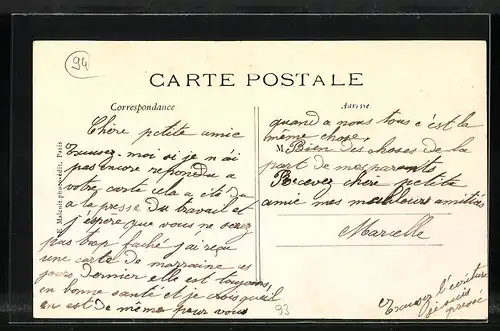 94
CARTE POSTALE
Correspondance
Adresse
E. Malcuit phot-édit. Paris
Chère petite amie
Excusez-moi si je n'ai
pas encore répondu a
votre carte cela a été du
a la presse du travail et
j'éspère que vous ne serez
pas trop faché j'ai reçu
une carte de marraine ces
jours dernier elle est toujours
en bonne santé et je crois quil
en est de même pour vous
quand a nous tous c'est la
même chose.
M Bien des choses de la
part de mes parents
Recevez chère petite
amie mes meilleurs amitiés
Marcelle
Excuser l'écriture
je suis
pressé
93